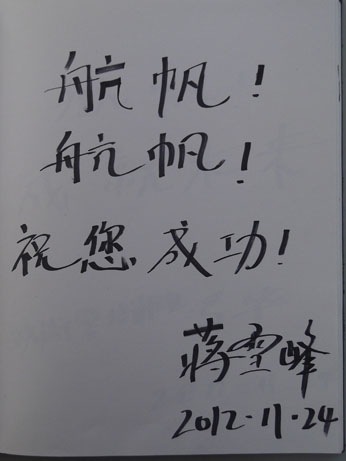 航帆！
航帆！
祝您成功！
蒋雪峰
2012.11.24